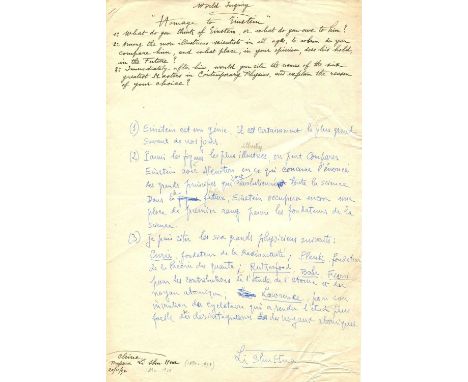 World Inquiry
"Homage to Einstein"
1: What do you think of Einstein or what do you owe to him?
2: Among the more illustrious scientists in all ages, to whom do you
compare him, and what place, in your opinion, does he hold,
in the Future?
3: Immediately after him, would you cite the names of the six
greatest Masters in Contemporary Physics, and explain the reason
of your choice?
(1) Einstein est un génie. Il est certainement le plus grand
savant de nos jours.
(2) Parmi les figures les plus illustres on peut comparer
Einstein avec Newton en ce qui concerne l'énoncé
des grands principes qui révolutionnent toute la science.
Dans le future, Einstein occupera encore une
place de premier rang parmi les fondateurs de la
science.
(3) Je puis citer les six grands physiciens suivants:
Curie, fondateur de la Radioactivité; Planck fondateur
de la théorie des quanta; Rutherford Bohr Fermi
pour les contributions à l'étude de l'atome et du
noyau atomique, Lawrence pour son
invention du cyclotron qui a rendu l'étude plus
facile des noyaux atomiques.
Chine
Li Shu Hua
Li Shu Hua